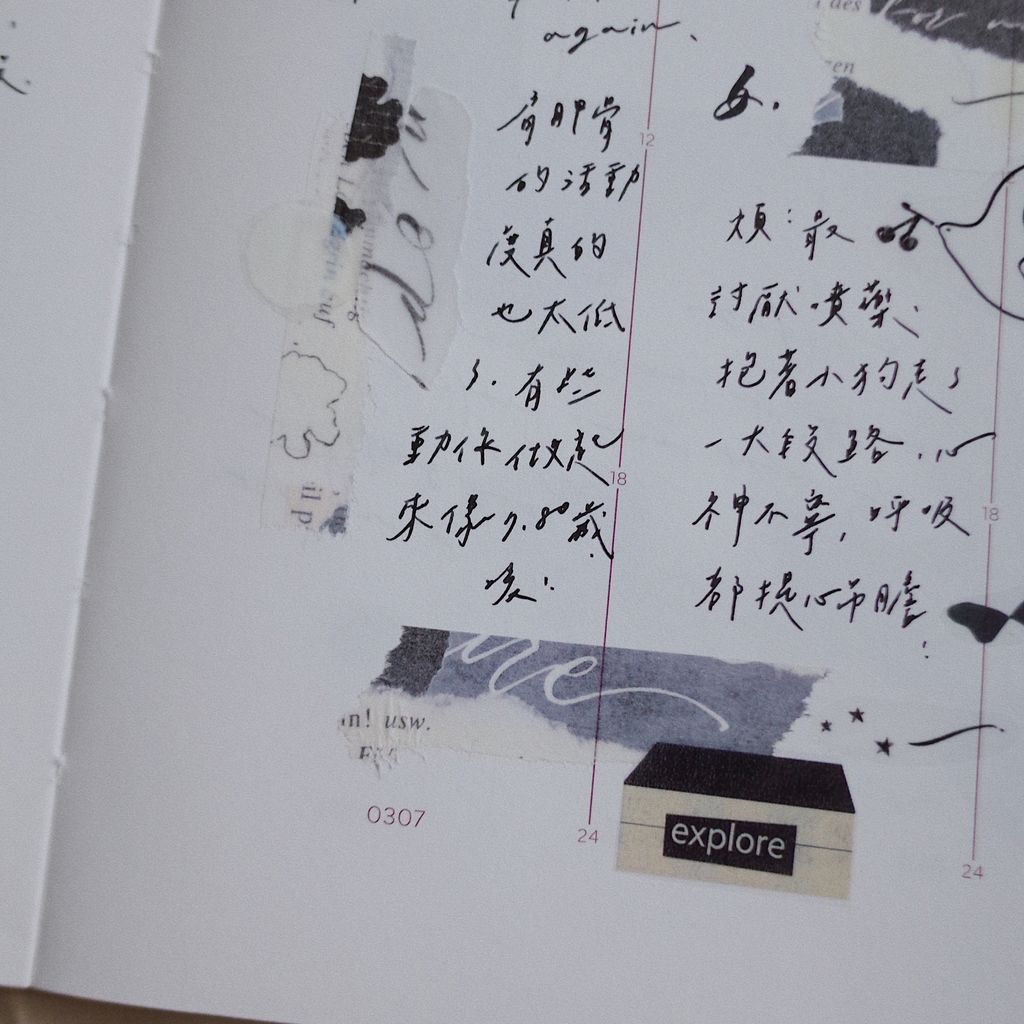 again.
肩胛骨
的活動
度真的
也太低
了.有些
動作做起
來像7.80歲
唉!
12
18
24
0307
6.
煩:最
討厭噴藥.
抱著小狗走了
一大段路.心
神不寧,呼吸
都提心吊膽!
18
24
in! usw.
explore